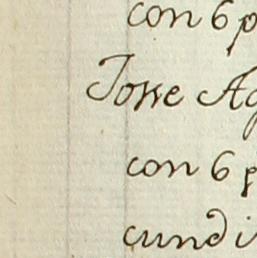 con 6 p
Josse Ag
con 6 p
cundi